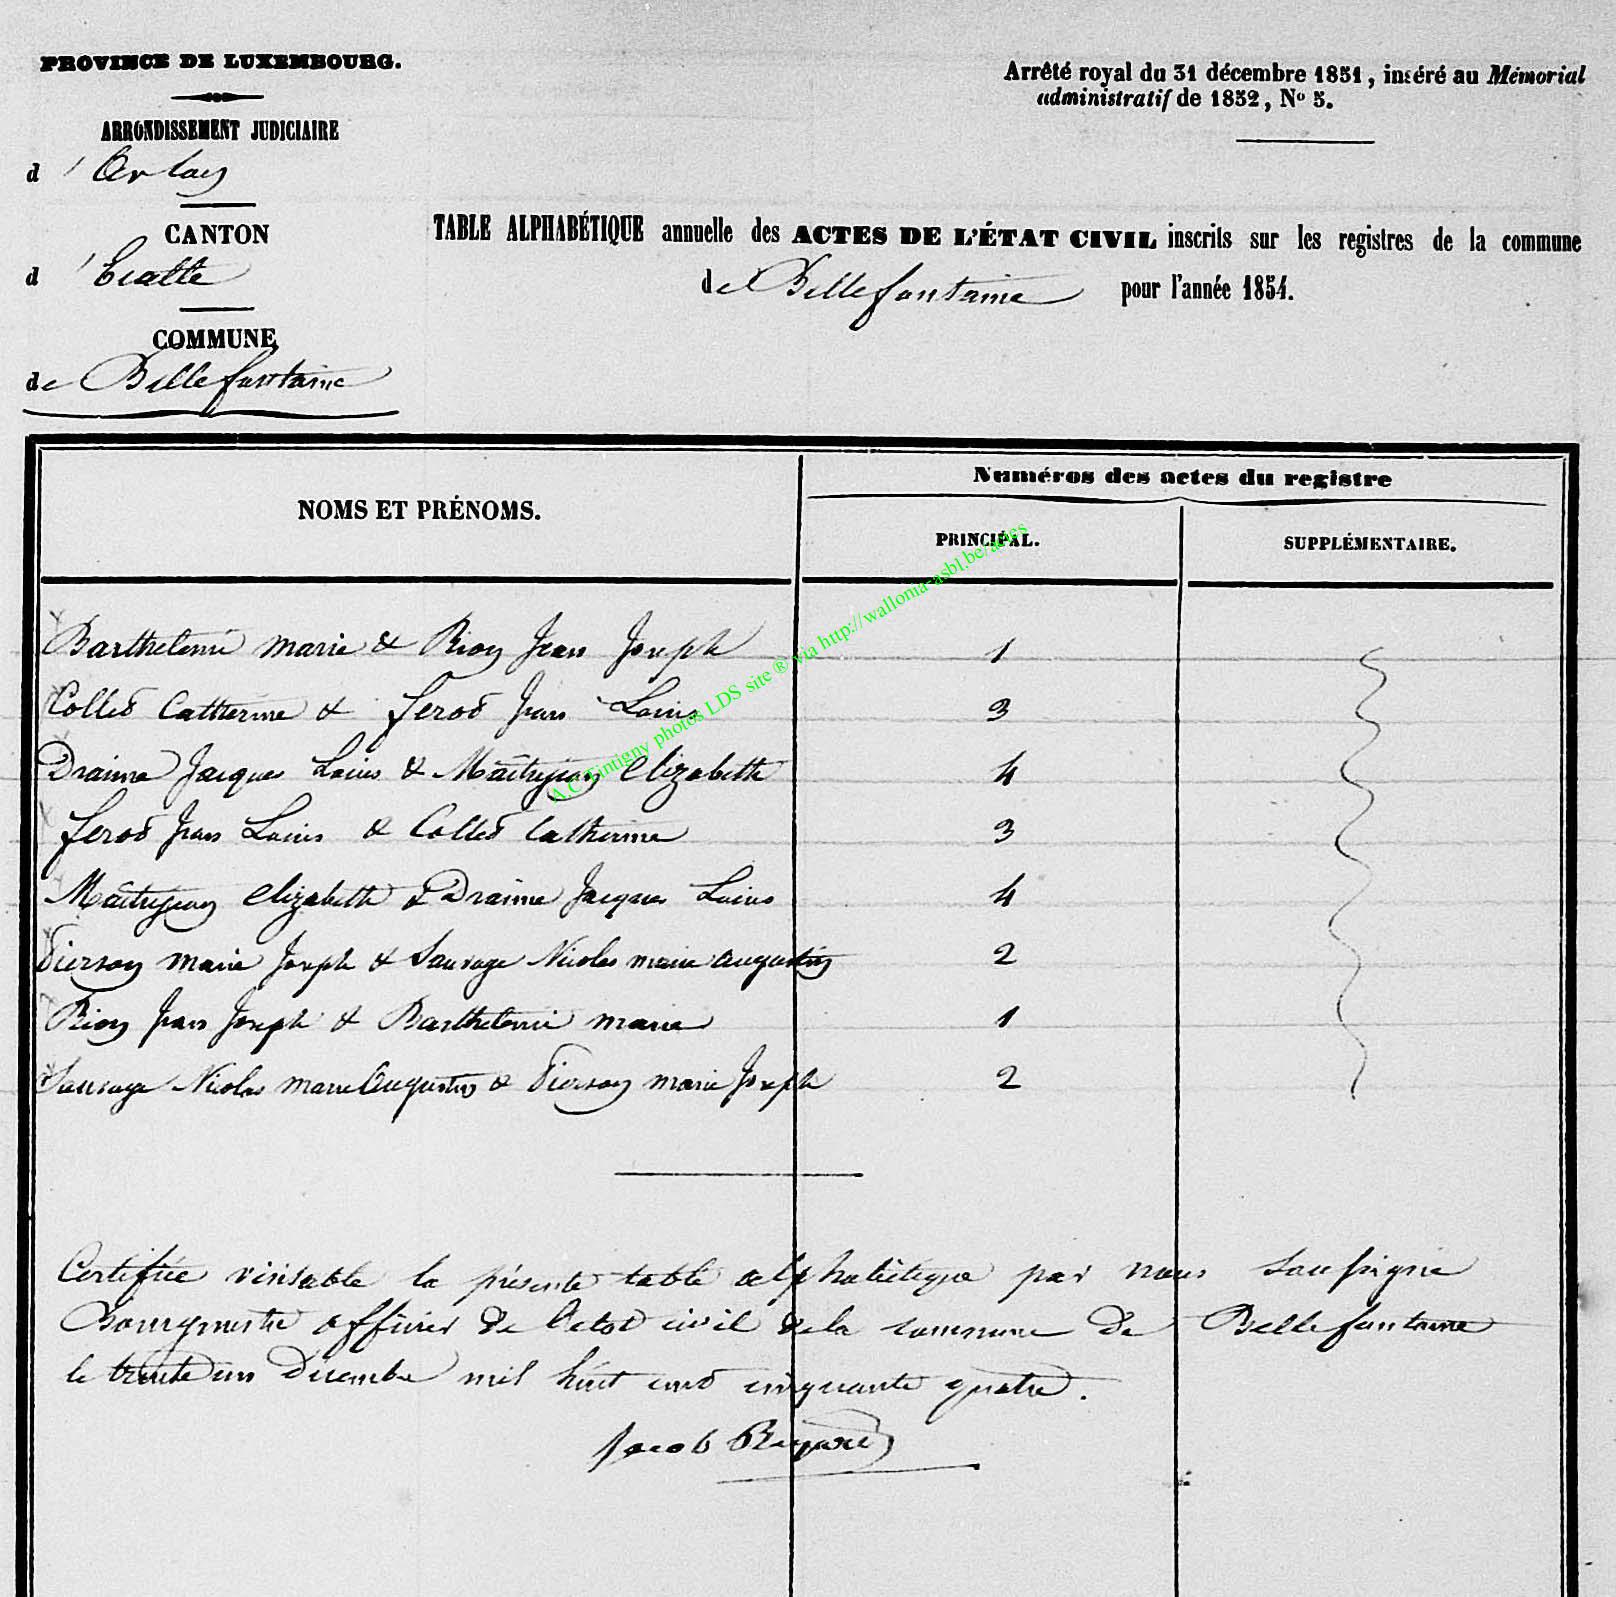 PROVINCE DE LUXEMBOURG.
Arrêté royal du 31 décembre 1851, inséré au Mémorial
administratif de 1852, No 5.
ARRONDISSEMENT JUDICIAIRE
d'Arlon
CANTON
d'Etalle
COMMUNE
de Bellefontaine
TABLE ALPHABÉTIQUE annuelle des ACTES DE L'ÉTAT CIVIL inscrits sur les registres de la commune
de Bellefontaine pour l'année 1854.
NOMS ET PRÉNOMS.
Numéros des actes du registre
PRINCIPAL.
SUPPLÉMENTAIRE.
Barthelemi marie & Rion Jean Joseph 1
Collet Catherine & ferot Jean Louis 3
Draime Jacques Louis & Maitrejean Elizabeth 4
ferot Jean Louis & Collet Catherine 3
Maitrejean Elizabeth & Draime Jacques Louis 4
Pierson marie Joseph & Sauvage Nicolas marie Augustin 2
Rion Jean Joseph & Barthelemi marie 1
Sauvage Nicolas marie Augustin & Pierson marie Joseph 2
A.C. Tintigny photos LDS site ® via http://wallonia-asbl.be/actes
Certifiée véritable la présente table alphabétique par nous soussigné
Bourgmestre officier de l'etat civil de la commune de Bellefontaine
le trente un Decembre mil huit cent cinquante quatre.
Jacob